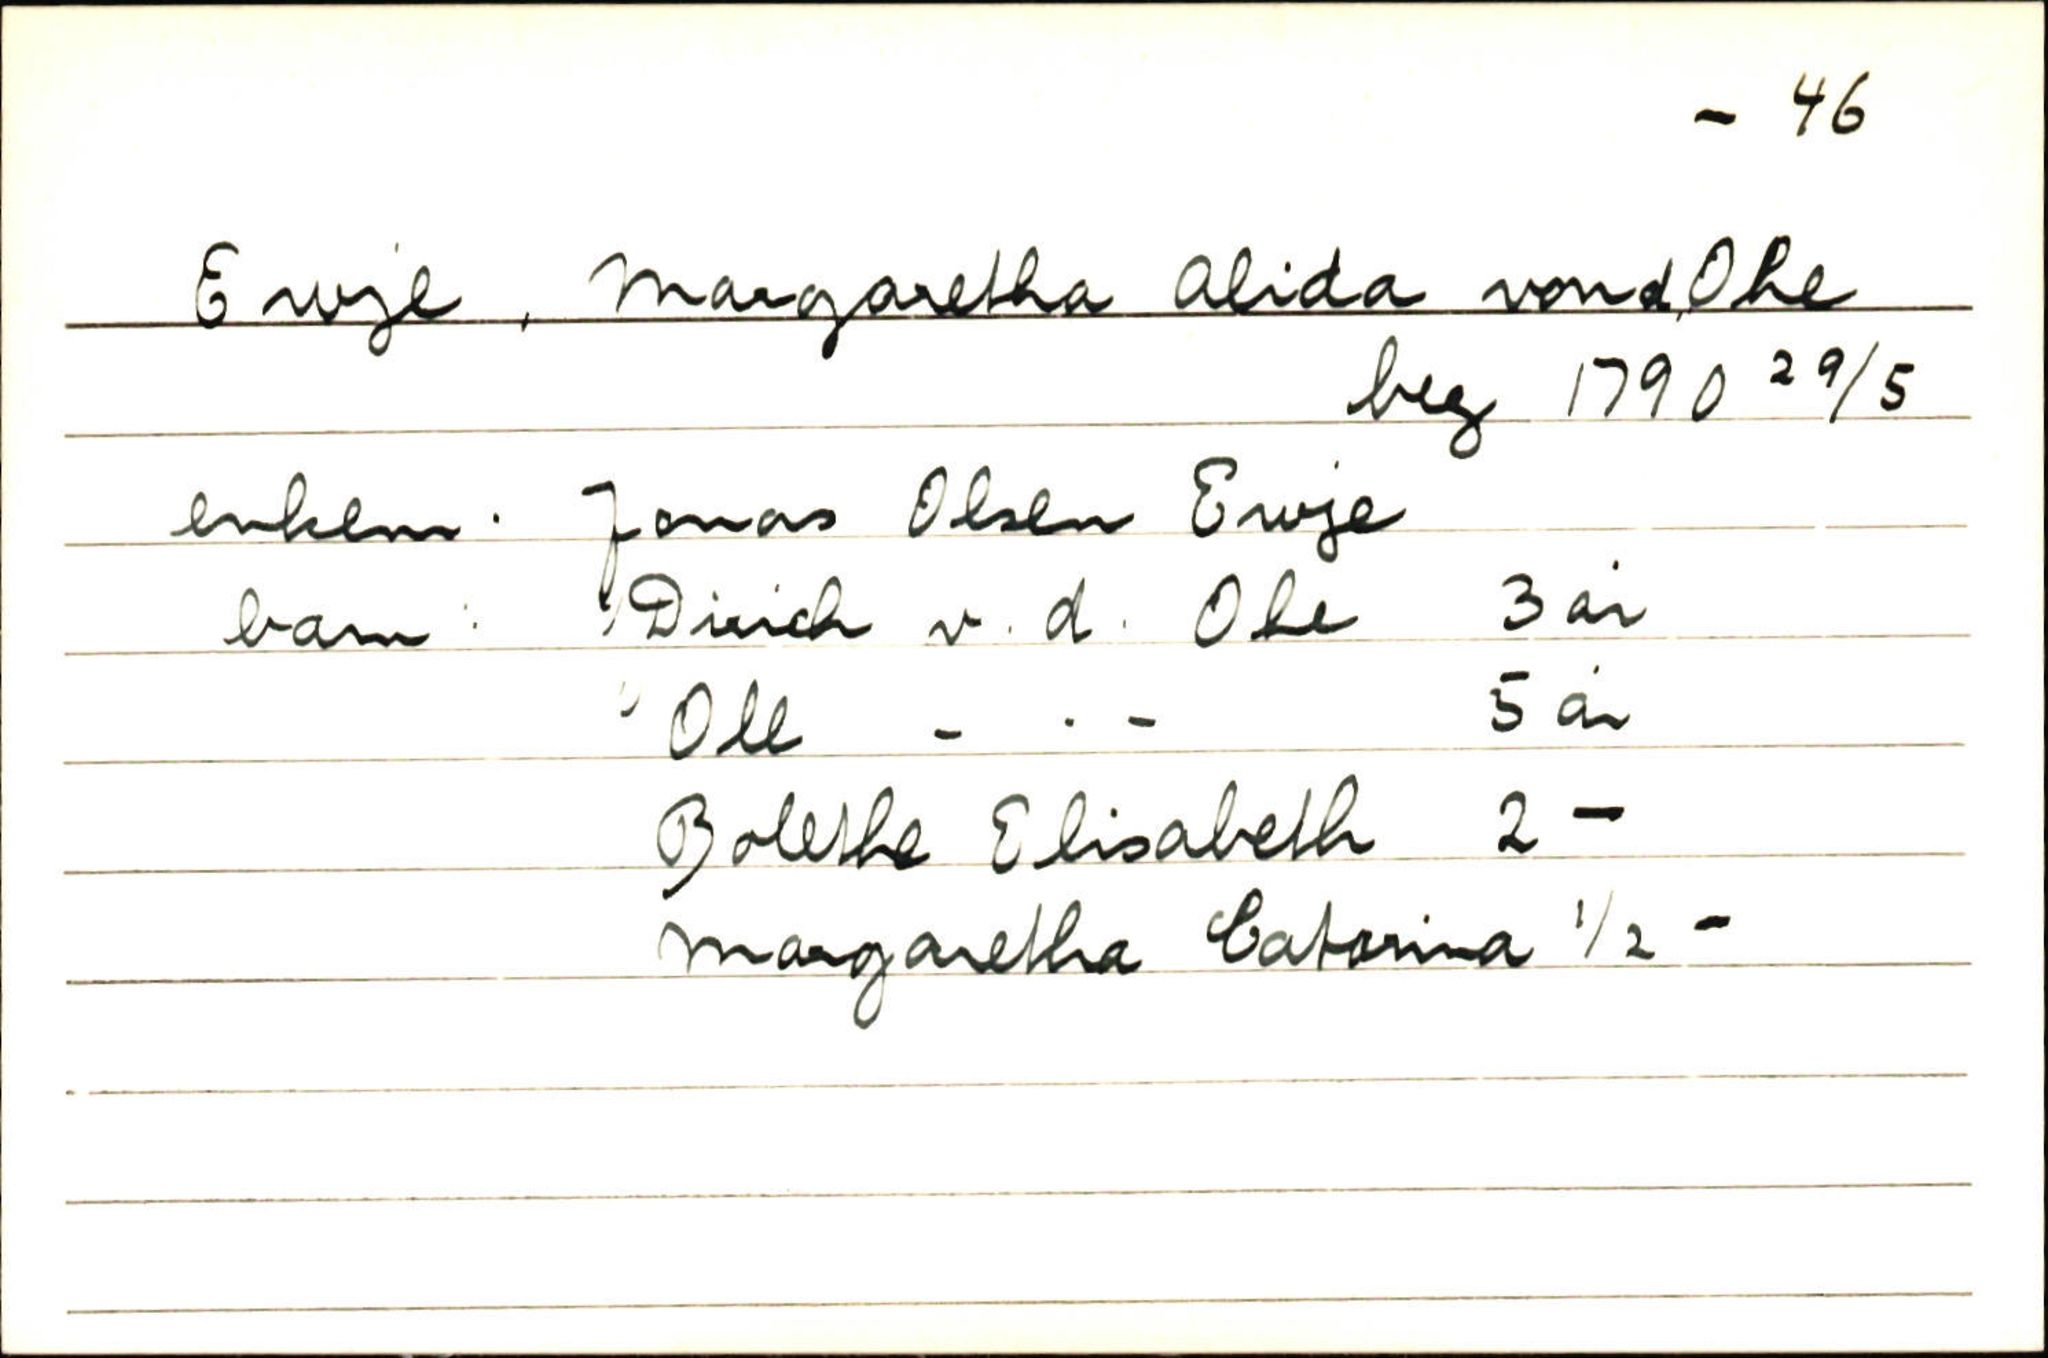 - 46
Ewje, Margaretha Alida von d. Ohe
beg 1790 29/5
enkem. Jonas Olsen Ewje
barn: 1) Dirich v. d. Ohe 3 år
Ole - . - 5 år
Bolethe Elisabeth 2 -
Margaretha Catarina 1/2 -